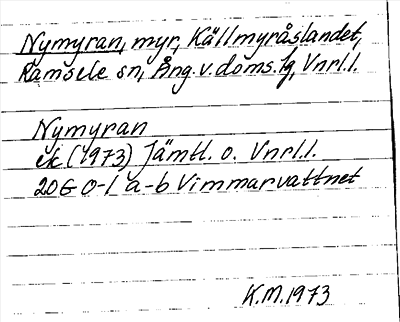 Nymyran, myr, Källmyråslandet,
Ramsele sn, Ång. v. doms. lg, Vnrl. l.
Nymyran
ek (1973) Jämtl. o. Vnrl. l.
20G 0-1 a-b Vimmarvattnet
K.M. 1973